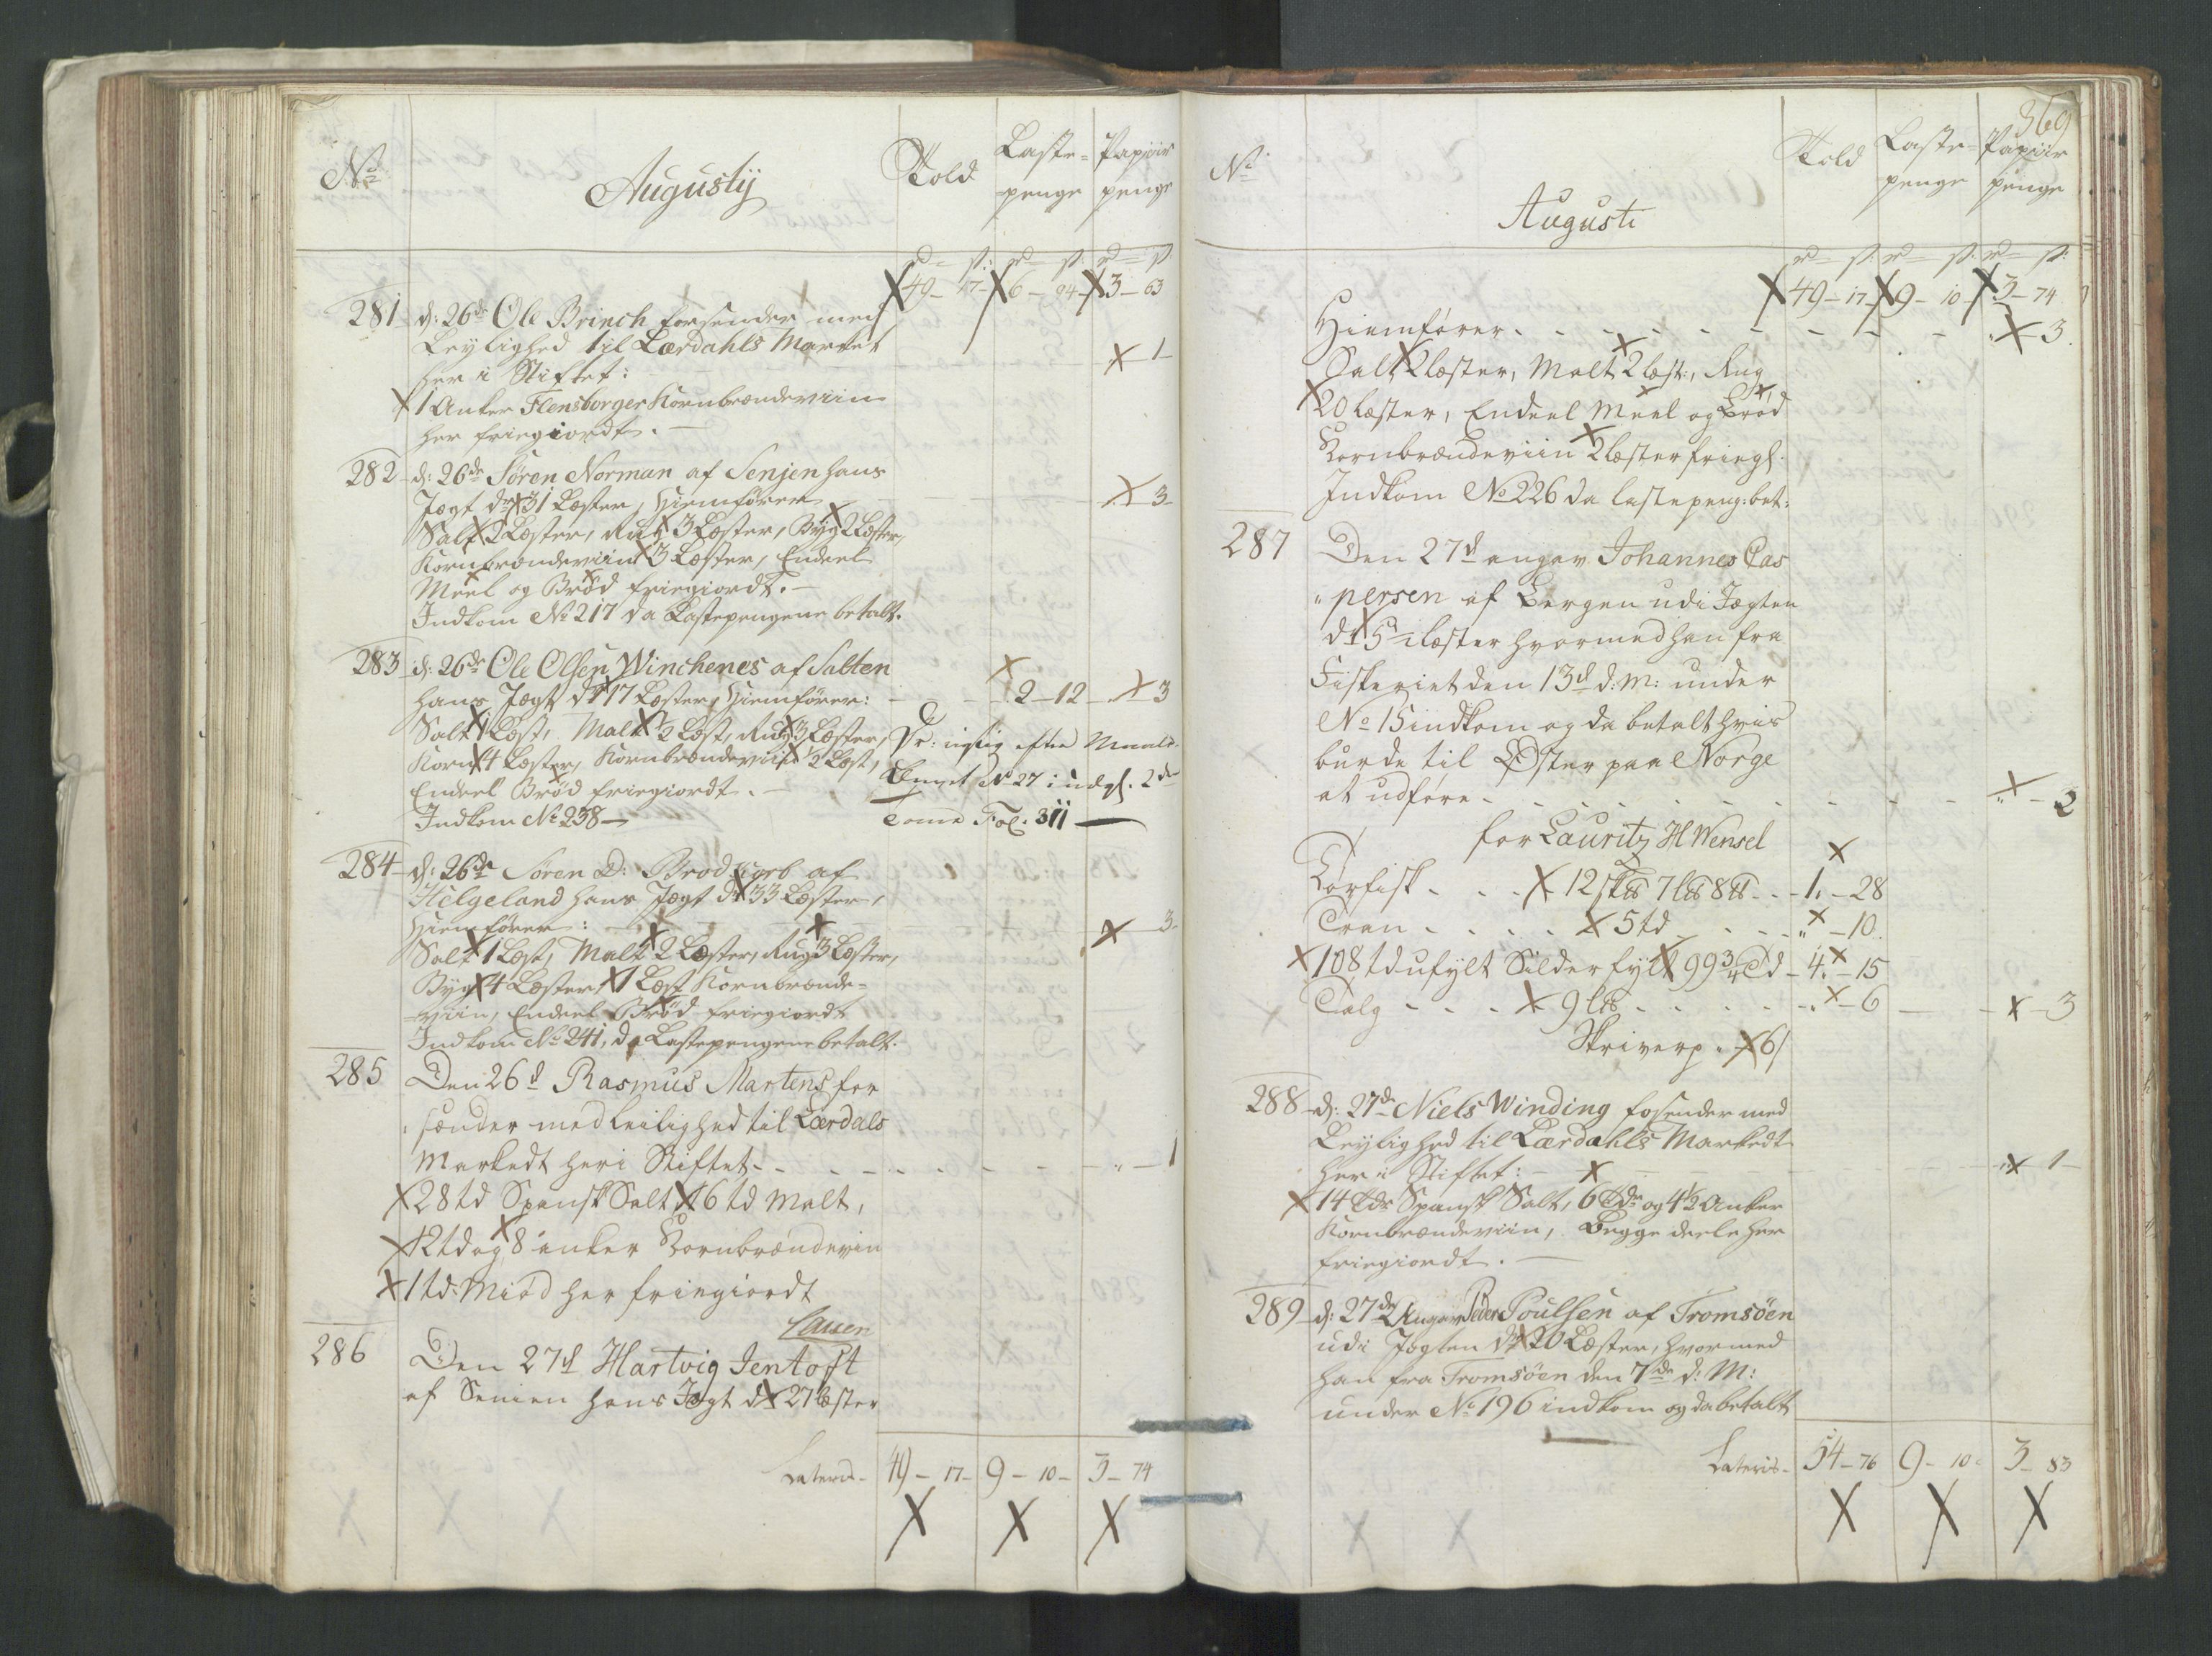 No
Augustij
Told
Laste-
penge
Papiir
penge
rd – s: rd – s: rd – s
49 – 17 – 6 – 94 – 3 – 63
281 d: 26de Ole Brinch forsender med
Leylighed til Lærdahls Market
her i Stiftet: 1
1 Anker Flensborger Kornbrændeviin
her friegiordt.
282 d: 26de Søren Norman af Senjen hans
Jægt dr: 31 Læster, Hiemfører 3
Salt 2 Læster, Rug 3 Læster, Byg 2 Læster,
Kornbrændeviin 3 Læster, Endeel
Meel og Brød friegiordt.
Indkom No 217 da Lastepengene betalt.
283 d: 26de Ole Olsen Winchenes af Salten
hans Jægt dr 17 Læster, Hiemfører: 2 – 12 – 3
Salt 1 Læst, Malt ½ Læst, Rug 3 Læster,
Korn 4 Læster, Kornbrændeviin ½ Læst,
Endeel Brød friegiordt.
Indkom No 238 –
rigtig efter Maale
No 27 2de
Tome Fol. 311
284 d: 26de Søren D: Brodkorb af
Helgeland hans Jægt dr 33 Læster,
Hiemfører: 3
Salt 1 Læst, Malt 2 Læster, Rug 3 Læster,
Byg 4 Læster, 1 Læst Kornbrænde-
-viin, Endeel Brød friegiordt
Indkom No 241, da Lastepengene betalt.
285 Den 26d Rasmus Martens for
sender med leilighed til Lærdals
Markedt her i Stiftet 1
28 td Spansk Salt 16 td Malt,
12 td og 8 anker Kornbrændevin
1 td: Miød her friegiordt
286 Den 27d Hartvig Jentoft
af Senien hans Jægt dr 27 læster
Lateris – 49 – 17 – 9 – 10 – 3 – 74
369
No
Augusti
Told
Laste-
penge
Papiir
penge
rd – s: rd – s: rd – s:
49 – 17 – 9 – 10 – 3 – 74
Hiemfører 3.
Salt 2 læster, Malt 2 læst:, Rug
20 læster, Endeel Meel og Brød
Kornbrændeviin 2 læster friegl.
Indkom No 226 da lastepeng: bet:
287 Den 27d angav Johannes Cas
"persen af Bergen udi Jægten
dr 5 læster hvormed han fra
Fiskeriet den 13d d: M: under
No 15 indkom og da betalt hvis
burde til Øster paa Norge
at udføre 2
for Lauritz H Wensel
Tørfisk 12 sk℔ 7 l℔ 8 ℔ 1. – 28
Tran 5 td " – 10.
108 td ufylt Silder fylt 99¾ Td – 4. – 15
Talg 9 l℔ – 6 – 3
Skriverp. 6/
288 d: 27de Niels Winding fosender med
Leylighed til Lærdahls Markedt
her i Stiftet: 1
14 Tdr Spansk Salt, 6 Tdr og 4½ Anker
Kornbrændeviin, Begge deele her
friegiordt.
289 d: 27de Angav Peder Poulsen af Tromsöen
udi Jægten dr 20 Læster, hvormed
han fra Tromsöen den 7de d: M:
under No 196 indkom og da betalt
Lateris – 54 – 76 9 – 10 – 3 – 83